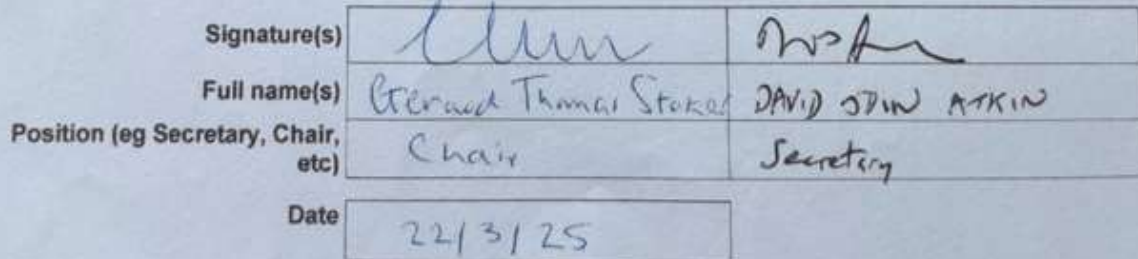 Signature(s)
Full name(s) Gerard Thomas Stokes DAVID ODIN ATKIN
Position (eg Secretary, Chair, etc) Chair Secretary
Date 22/3/25